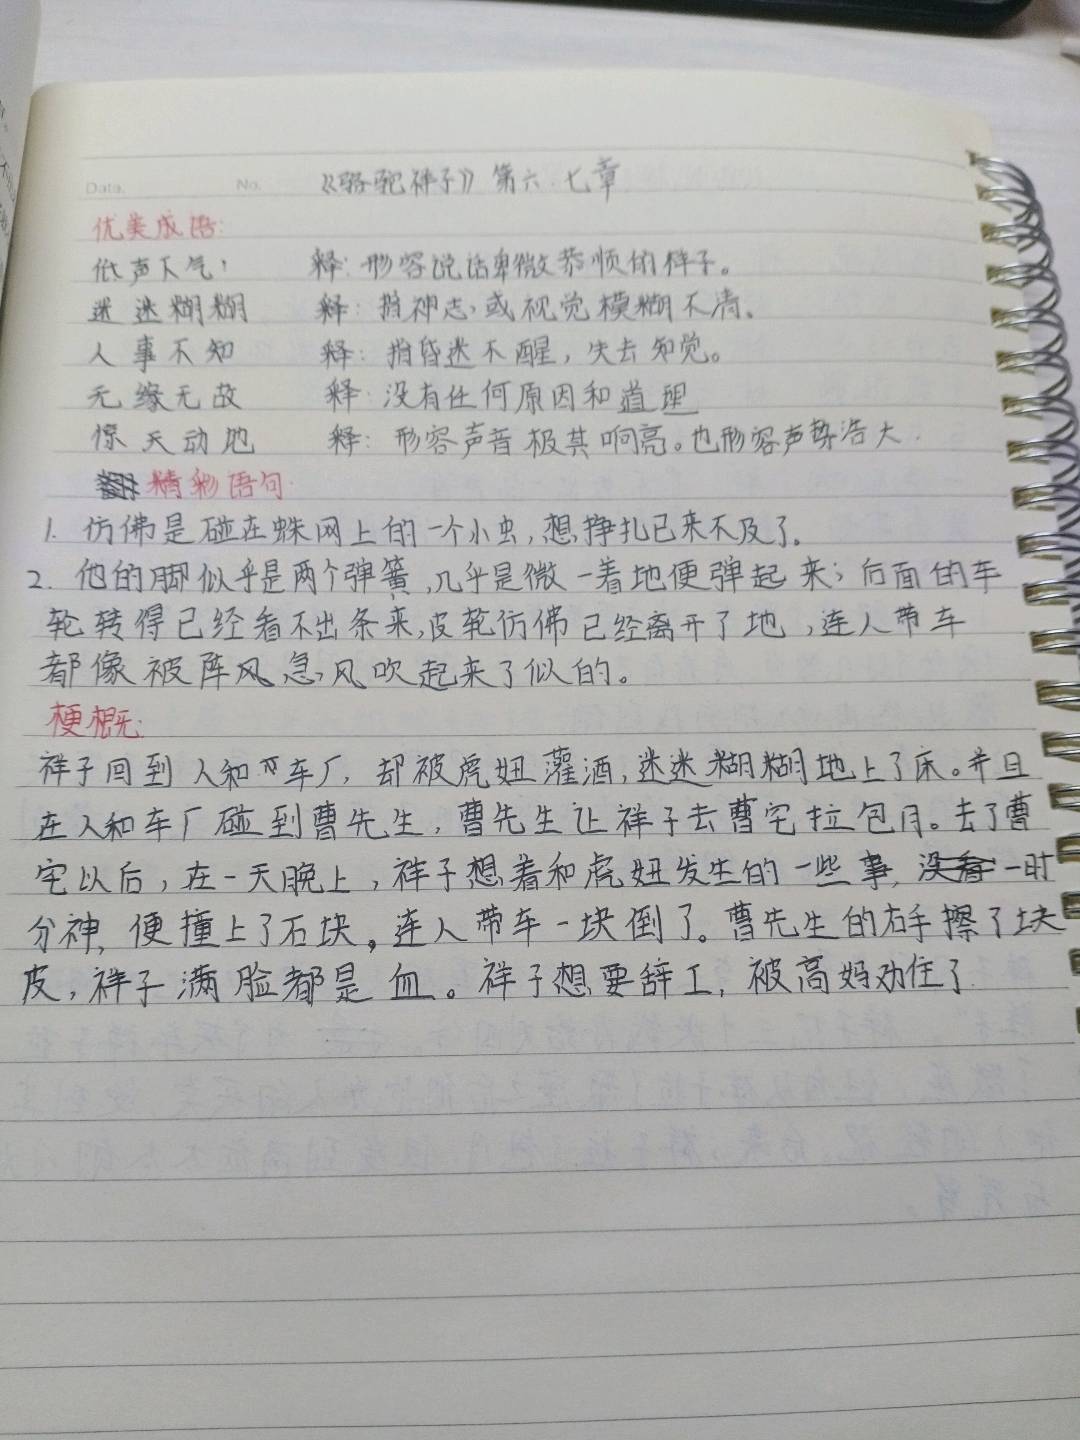 Date. No. 《骆驼祥子》第六.七章
优美成语:
低声下气: 释: 形容说话卑微恭顺的样子。
迷迷糊糊 释: 指神志,或视觉模糊不清。
人事不知 释: 指昏迷不醒,失去知觉。
无缘无故 释: 没有任何原因和道理
惊天动地 释: 形容声音极其响亮。也形容声势浩大.
精彩语句
1. 仿佛是碰在蛛网上的一个小虫,想挣扎已来不及了。
2. 他的脚似乎是两个弹簧,几乎是微一着地便弹起来;后面的车
轮转得已经看不出条来,皮轮仿佛已经离开了地,连人带车
都像被阵风急风吹起来了似的。
梗概:
祥子回到人和车厂,却被虎妞灌酒,迷迷糊糊地上了床。并且
在人和车厂碰到曹先生,曹先生让祥子去曹宅拉包月。去了曹
宅以后,在一天晚上,祥子想着和虎妞发生的一些事,一时
分神,便撞上了石块。连人带车一块倒了。曹先生的右手擦了块
皮,祥子满脸都是血。祥子想要辞工,被高妈劝住了